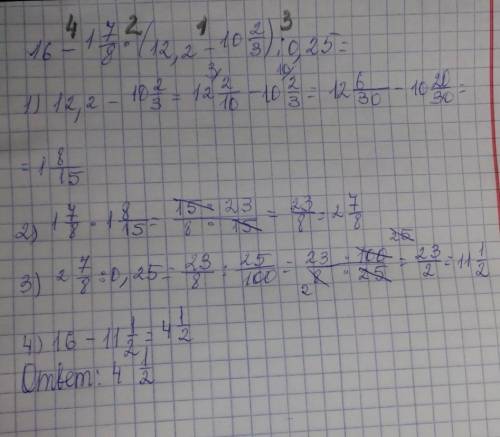 4 2 1 3
16 - 1 7/8 · (12,2 - 10 2/3) : 0,25 =
1) 12,2 - 10 2/3 = 12 2/10 - 10 2/3 = 12 6/30 - 10 20/30 =
= 1 8/15
2) 1 7/8 · 1 8/15 = 15 · 23/8 · 15 = 23/8 = 2 7/8
3) 2 7/8 : 0,25 = 23/8 : 25/100 = 23 · 100/8 · 25 = 23/2 = 11 1/2
4) 16 - 11 1/2 = 4 1/2
Ответ: 4 1/2